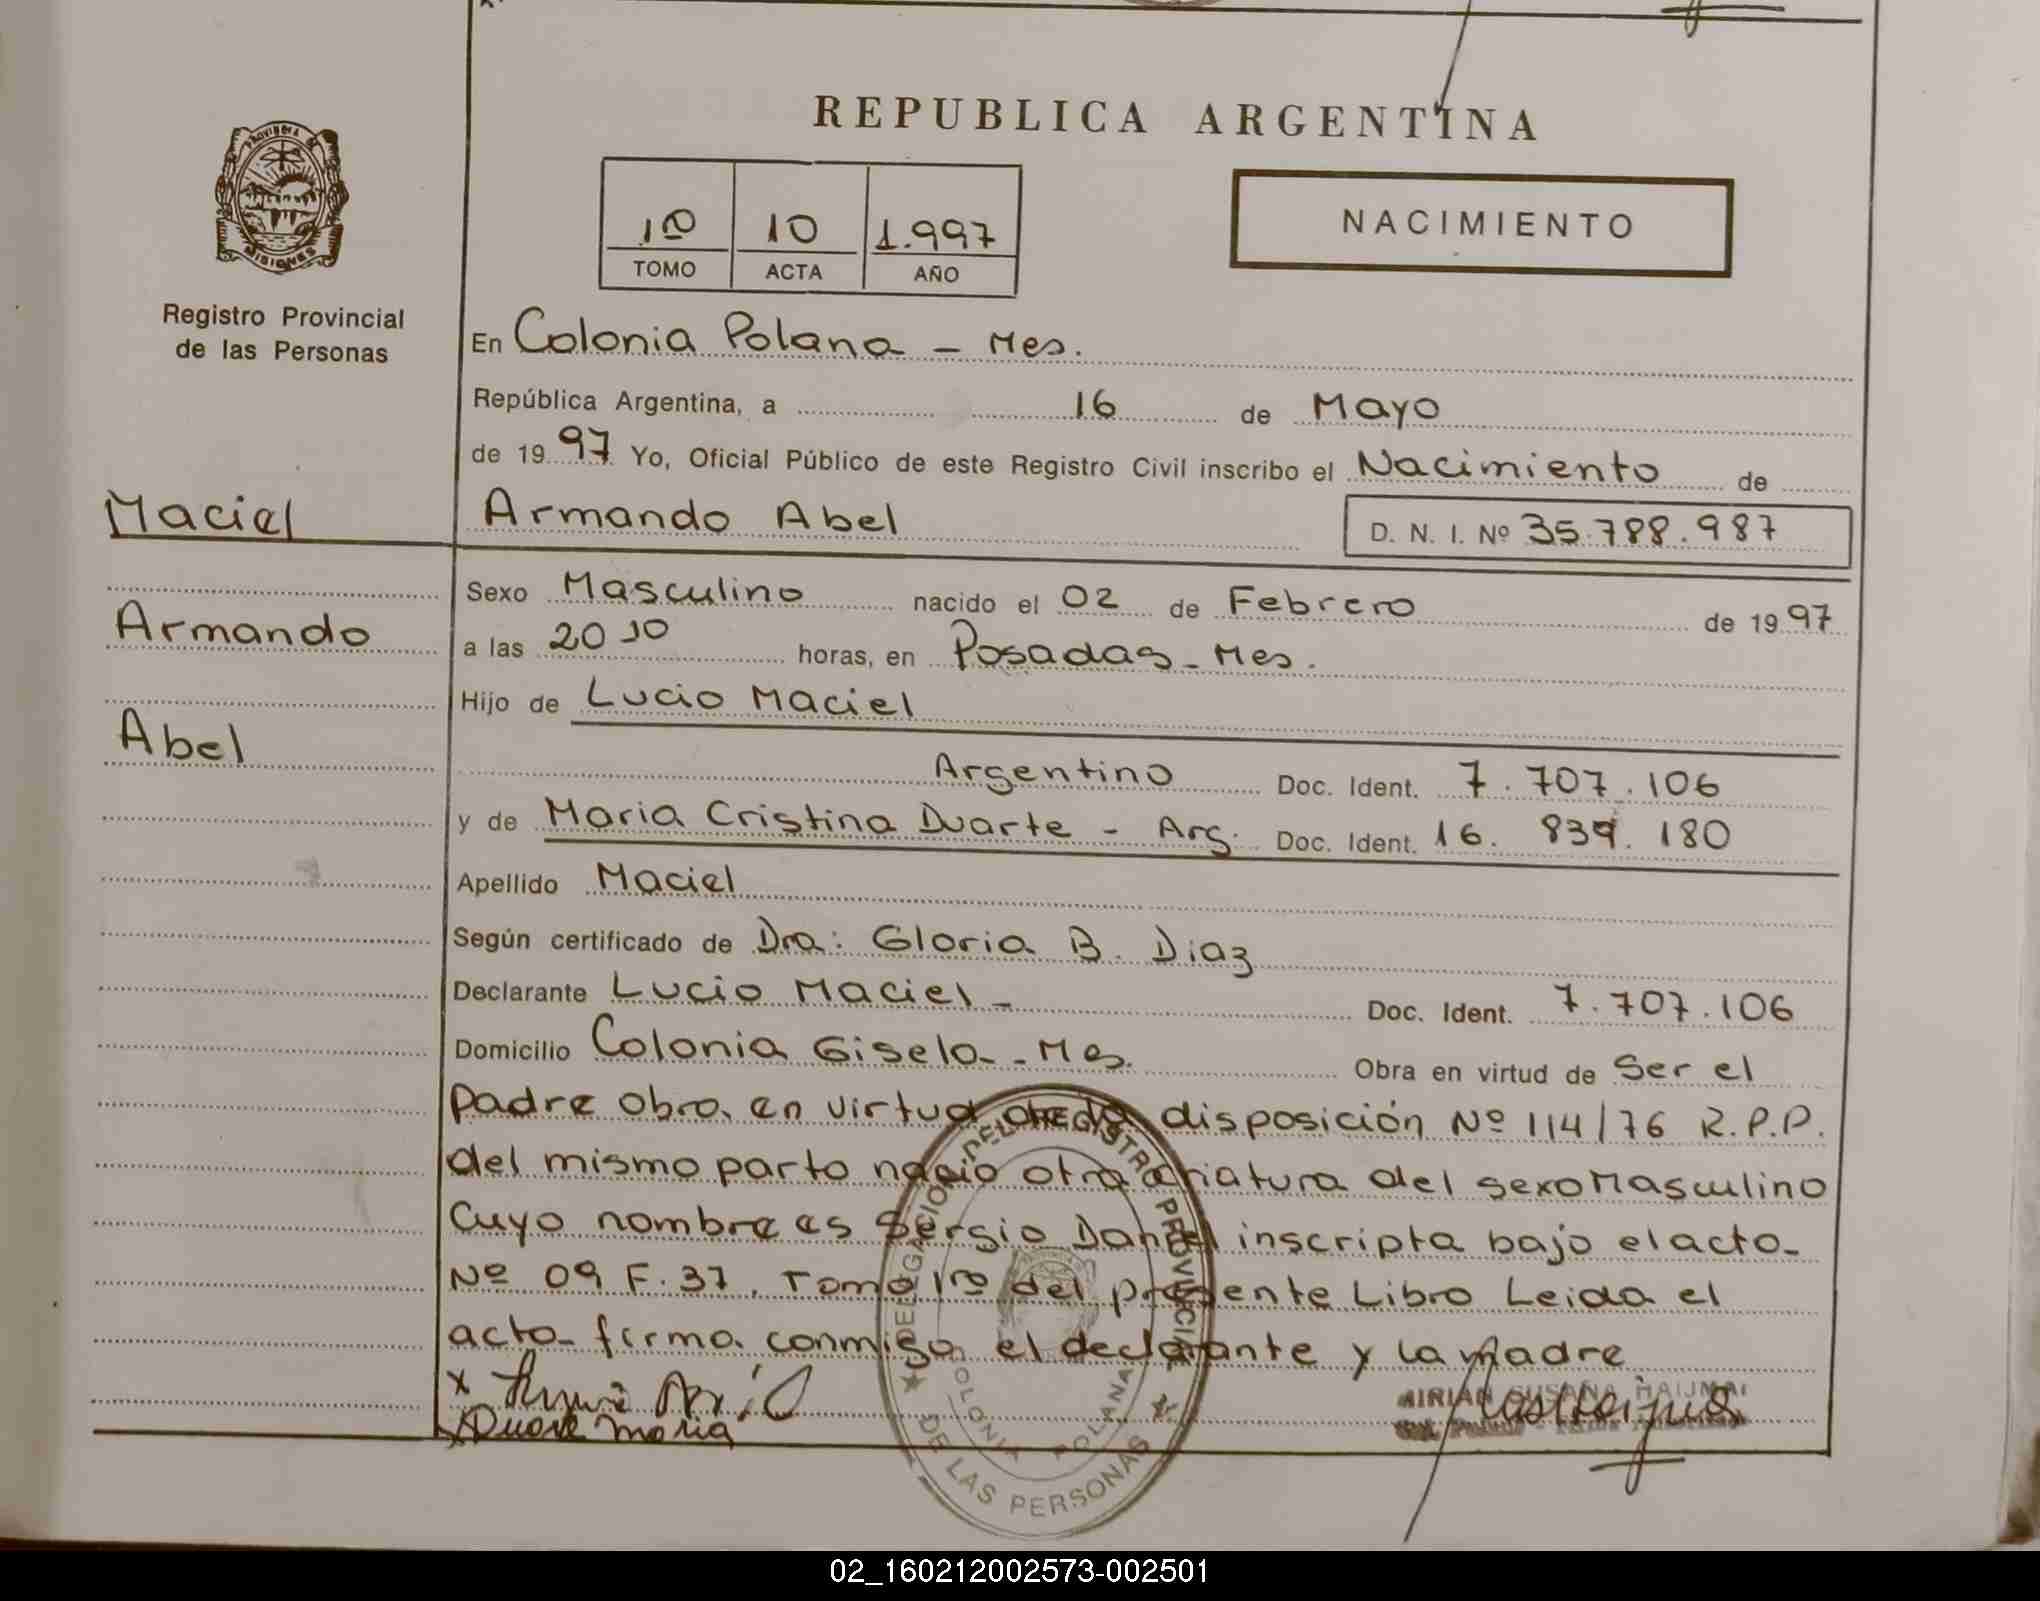 REPUBLICA ARGENTINA
PROVINCIA
MISIONES
Registro Provincial
de las Personas
1ro 10 1.997
TOMO ACTA AÑO
NACIMIENTO
En Colonia Polana - Mes.
República Argentina, a 16 de Mayo
de 1997 Yo, Oficial Público de este Registro Civil inscribo el Nacimiento de
Maciel
Armando
Abel
Armando Abel D. N. I. Nº 35.788.987
Sexo Masculino nacido el 02 de Febrero de 1997
a las 20 10 horas, en Posadas - Mes.
Hijo de Lucio Maciel
Argentino Doc. Ident. 7.707.106
y de Maria Cristina Duarte - Arg. Doc. Ident. 16. 839. 180
Apellido Maciel
Según certificado de Dra: Gloria B. Diaz
Declarante Lucio Maciel - Doc. Ident. 7.707.106
Domicilio Colonia Gisela - Mes. Obra en virtud de Ser el
padre obra en virtud de la disposición Nº 114/76 R.P.P.
del mismo parto nacio otra criatura del sexo Masculino
Cuyo nombre es Sergio Daniel inscripta bajo el acta
Nº 09 F. 37, Tomo 1ro del presente Libro Leida el
acta firma conmigo el declarante y la madre
x
Duarte Maria
DELEGACION DEL REGISTRO PROVINCIAL
DE LAS PERSONAS
COLONIA POLANA
SUSANA
02_160212002573-002501